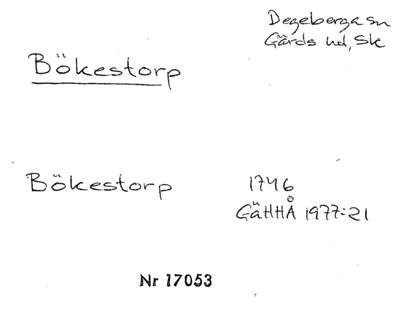 Degeberga sn
Gärds hd, Sk
Bökestorp
Bökestorp 1746
GäHHÅ 1977:21
Nr 17053